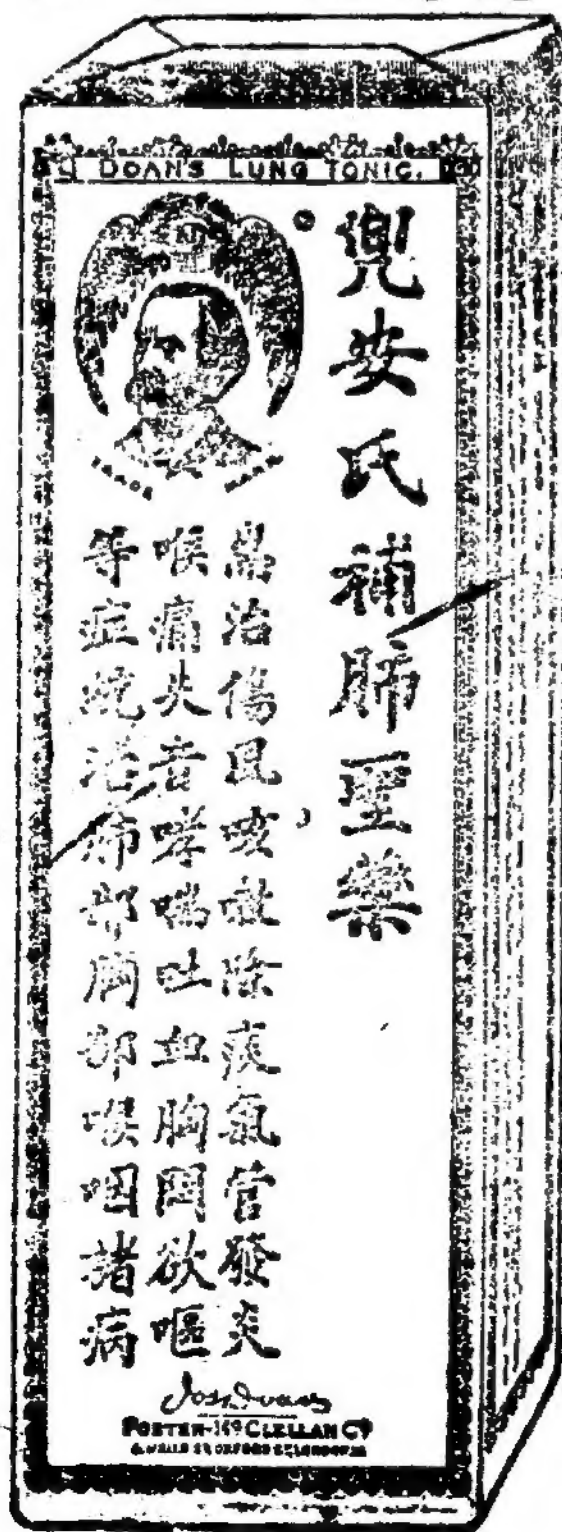 DOAN'S LUNG TONIC.
兜安氏補肺聖藥
TRADE MARK
專治傷風咳嗽除痰氣管發炎
喉痛失音哮喘吐血胸悶欲嘔
等症統治肺部胸部喉咽諸病
FOSTER-McCLELLAN Co